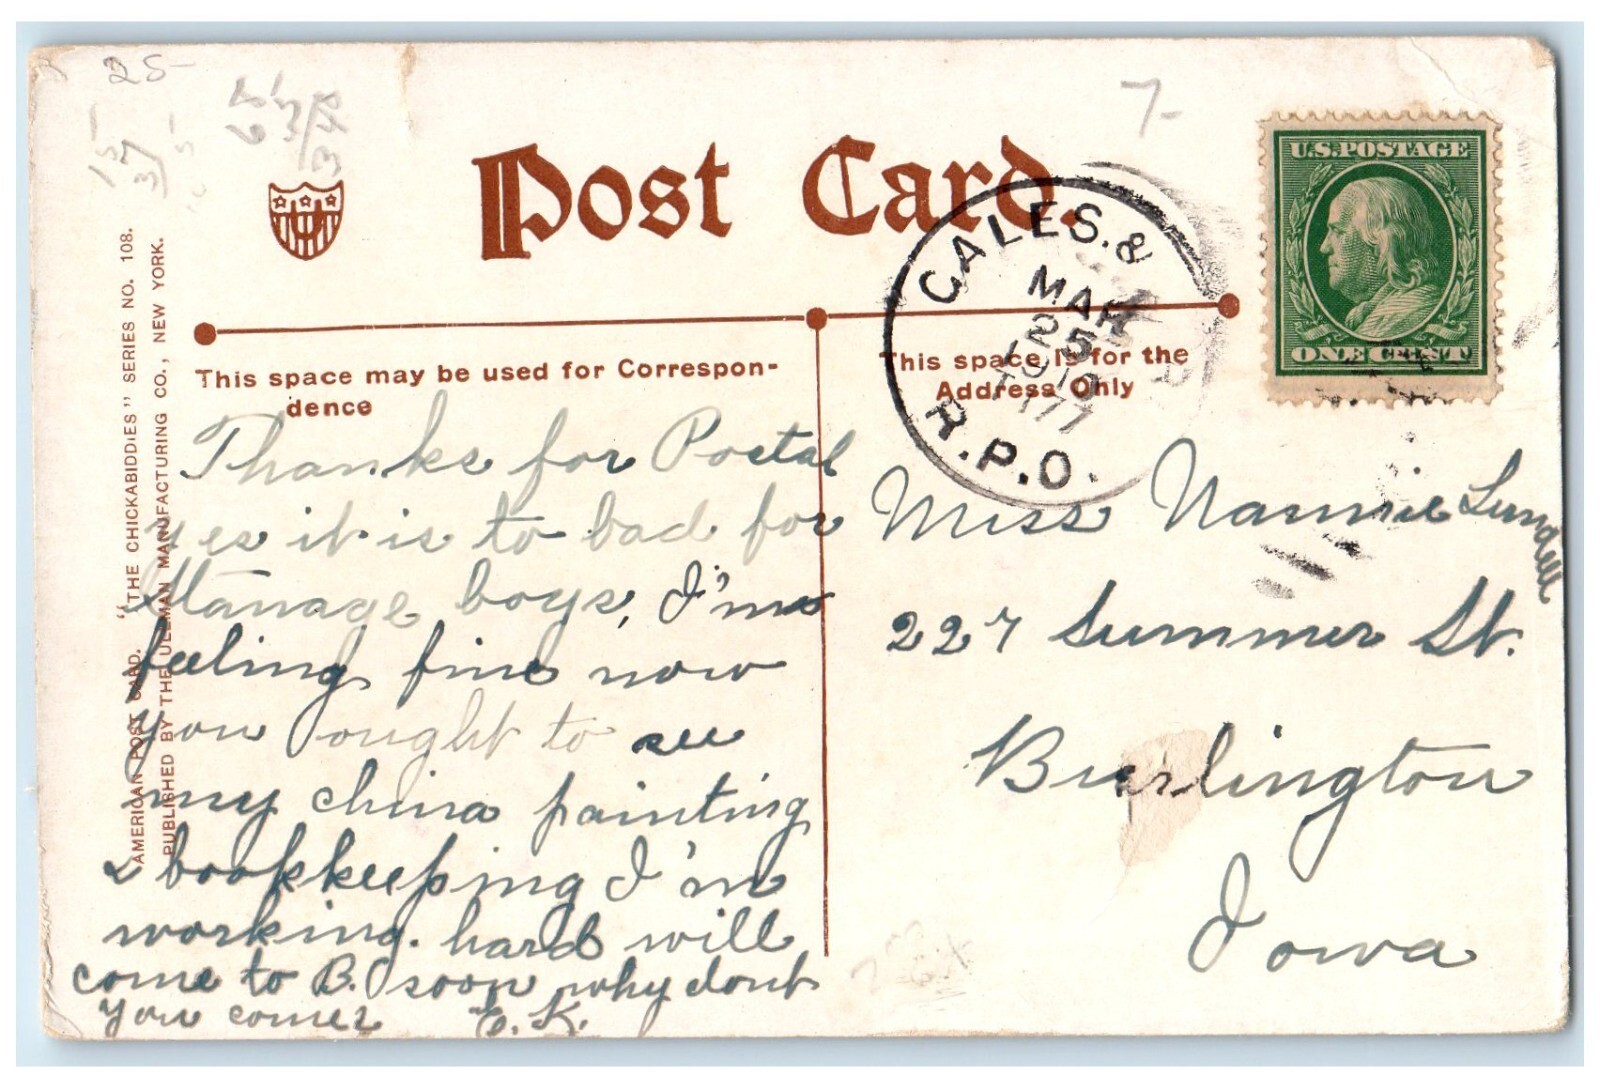 25-
7-
Post Card.
U.S.POSTAGE
ONE CENT
CALES. &
MAR
25
1910
R.P.O.
This space may be used for Correspon-
dence
This space is for the
Address Only
"THE CHICKABIDDIES" SERIES NO. 108.
AMERICAN POST CARD.
PUBLISHED BY THE ULLMAN MANUFACTURING CO., NEW YORK.
Thanks for Postal
yes it is to bad for
boys, I'm
feeling fine now
you ought to see
my china painting
& bookkeeping I'm
working. hard will
come to B. soon why dont
you come?
E. K.
Miss Nannie
227 Summer St.
Burlington
Iowa